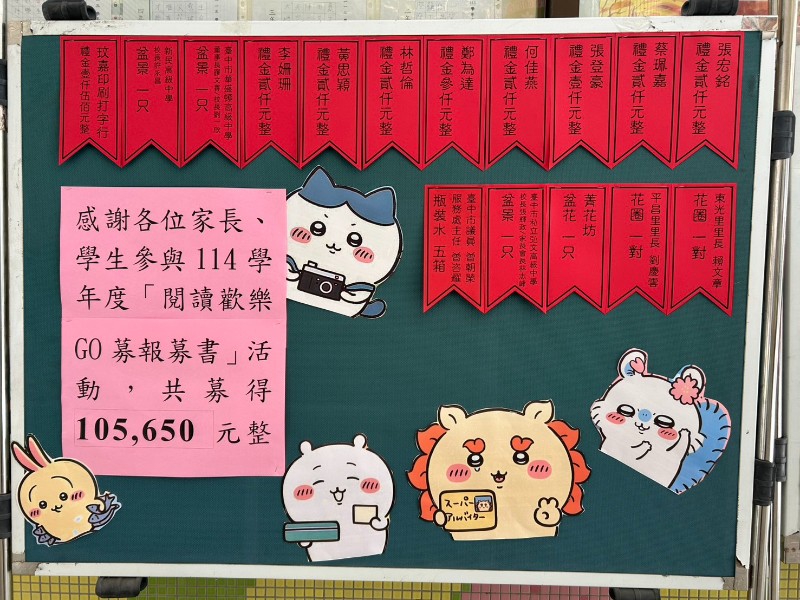 張宏銘
禮金貳仟元整
蔡珮嘉
禮金貳仟元整
張登豪
禮金壹仟元整
何佳燕
禮金貳仟元整
鄭為達
禮金參仟元整
林哲倫
禮金貳仟元整
黃思穎
禮金貳仟元整
李姍珊
禮金貳仟元整
臺中市華盛頓高級中學
盆景 一只
新民高級中學
盆景 一只
玟嘉印刷打字行
禮金壹仟伍佰元整
東光里里長 楊文章
花圈 一對
平昌里里長 劉慶雲
花圈 一對
菁花坊
盆花 一只
臺中市私立弘文高級中學
盆景 一只
臺中市議員 曾朝榮
服務處主任 曾咨耀
瓶裝水 五箱
感謝各位家長、
學生參與 114 學
年度「閱讀歡樂
GO 募報募書」活
動，共募得
105,650 元整
スーパー
アルバイター